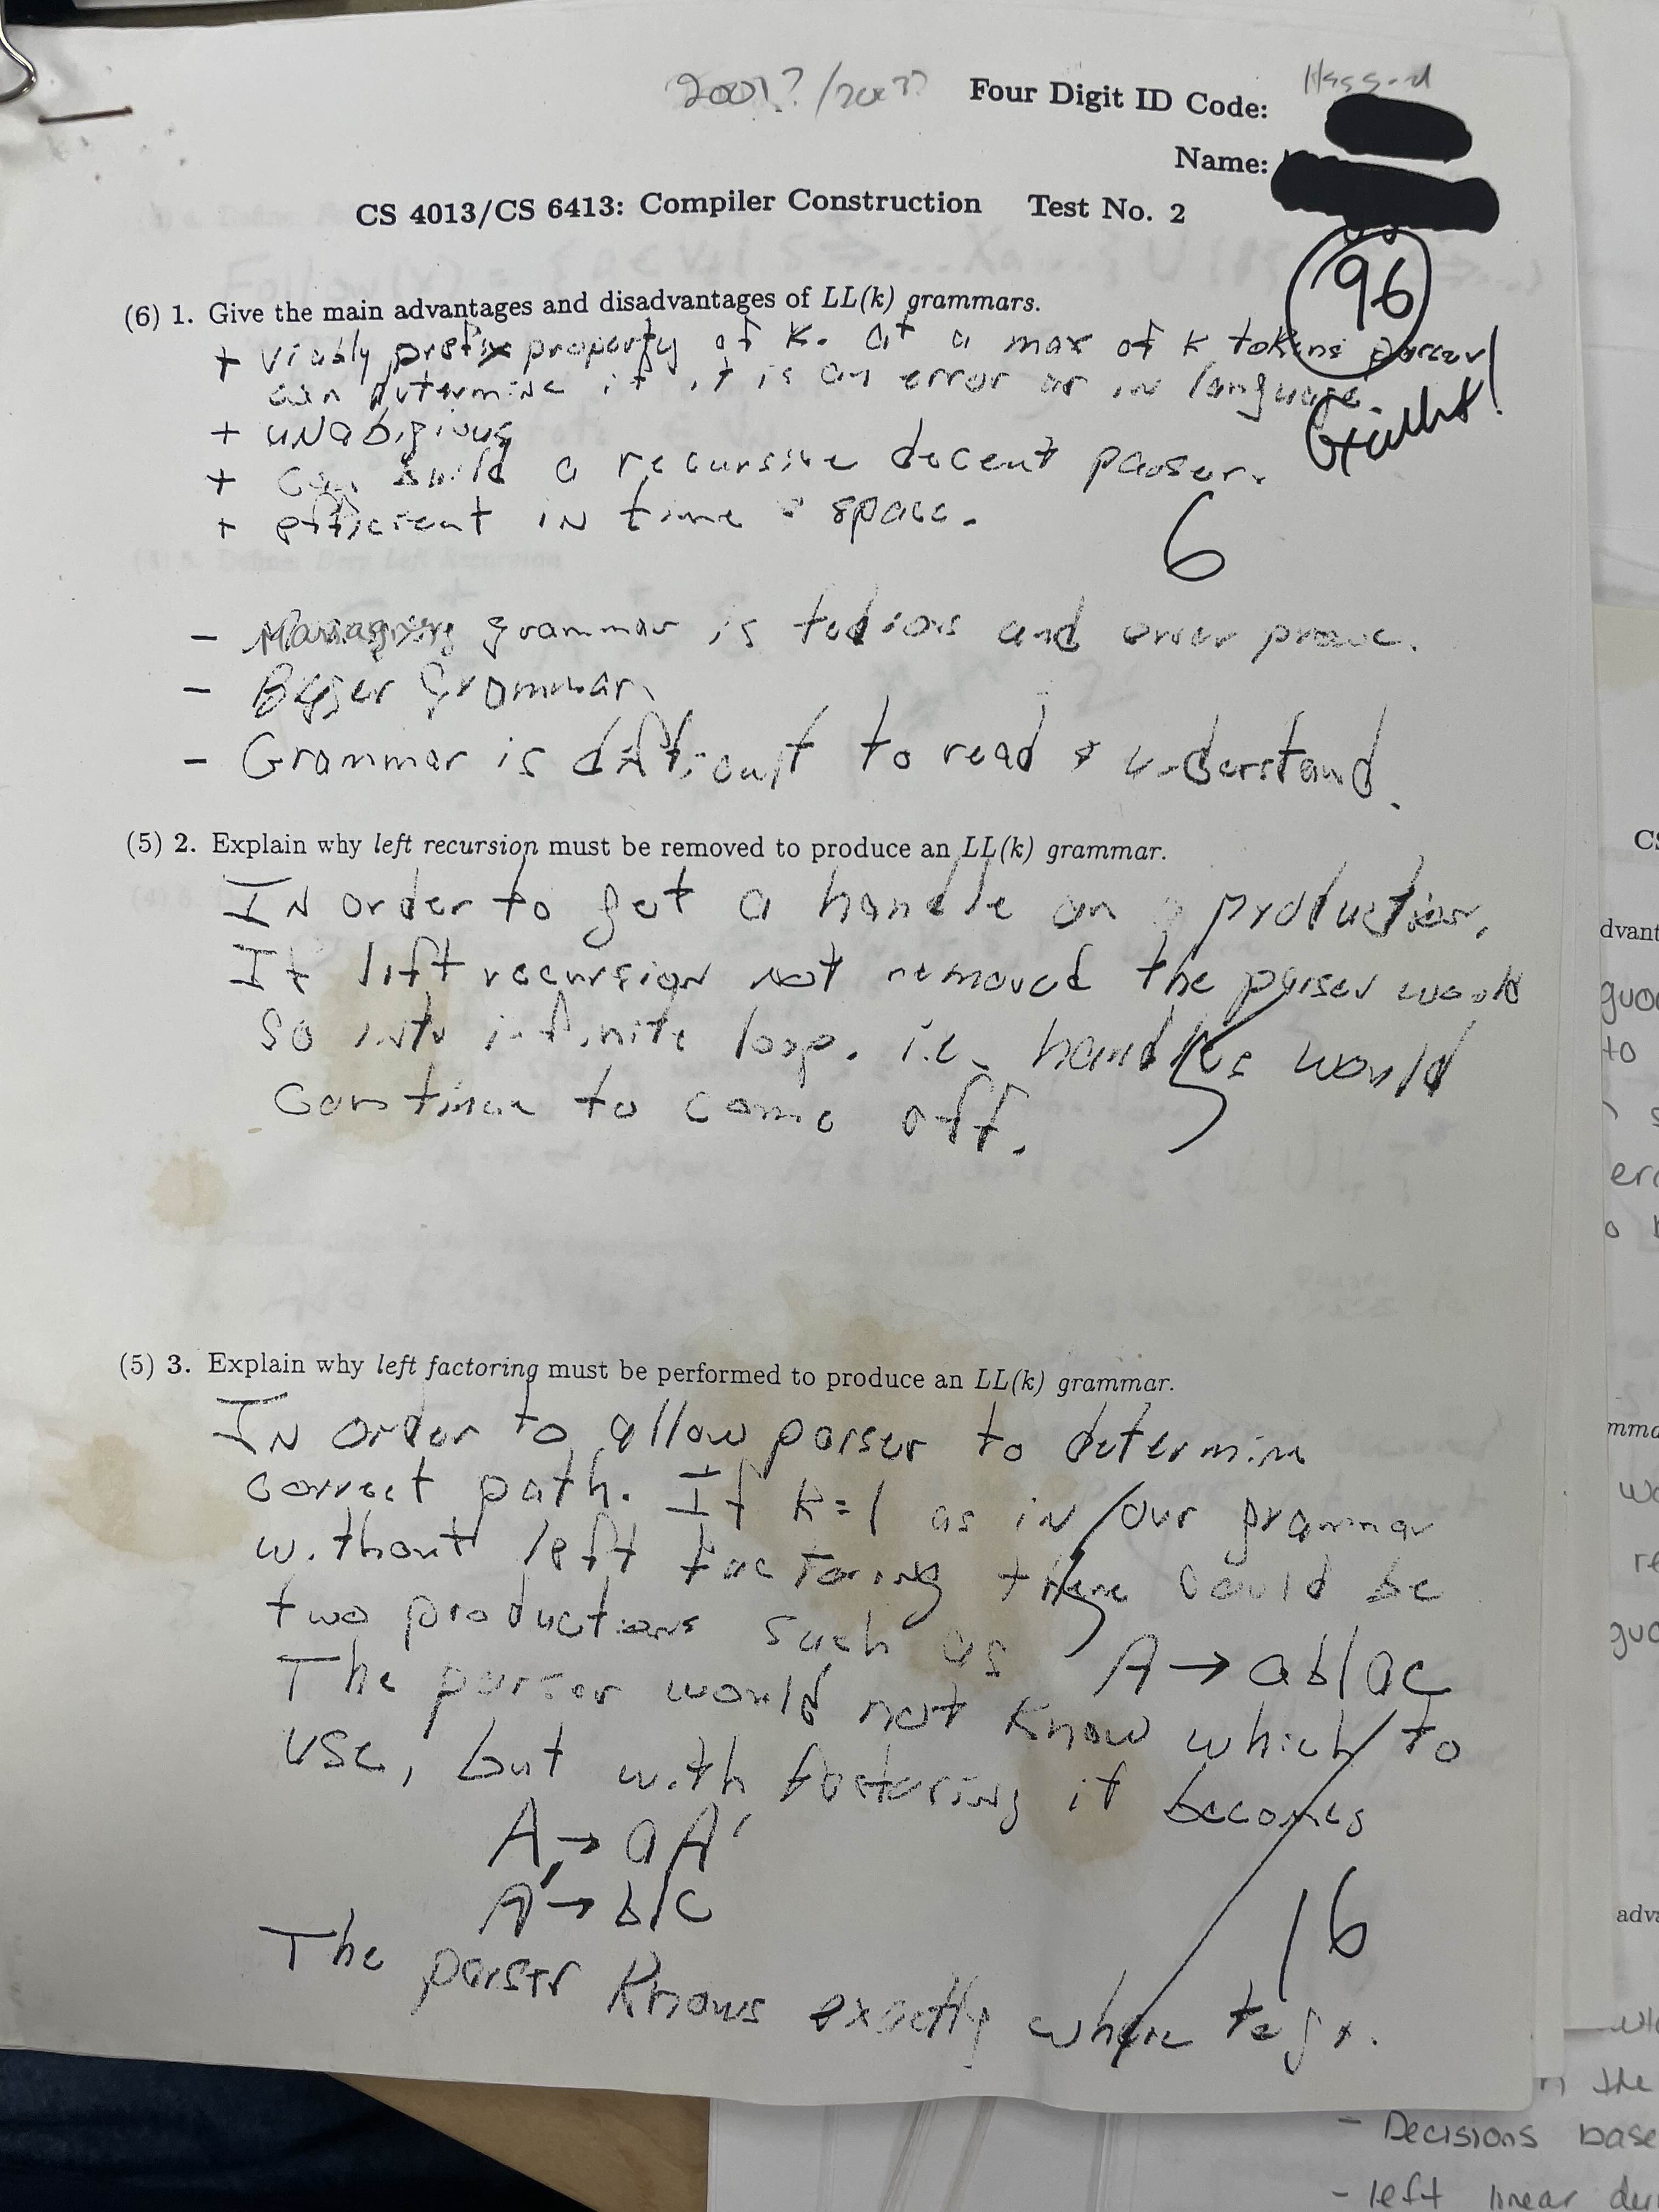 2001?/200??
Four Digit ID Code:
Name:
CS 4013/CS 6413: Compiler Construction Test No. 2
96
Excellent!
(6) 1. Give the main advantages and disadvantages of LL(k) grammars.
+ viably prefix property of k. at a max of k tokens parser
can determine if it is an error or in language.
+ unabigious
+ Can build a recursive decent parser.
+ efficient in time & space.
6
- Managing grammar is tedious and error prone.
- Bigger grammar.
- Grammar is difficult to read & understand.
(5) 2. Explain why left recursion must be removed to produce an LL(k) grammar.
In order to get a handle on a production.
If left recursion not removed the parser would
go into infinite loop. i.e. handles would
continue to come off.
5
(5) 3. Explain why left factoring must be performed to produce an LL(k) grammar.
In order to allow parser to determine
correct path. If k=1 as in our grammar
without left factoring there could be
two productions such as A → ab|ac
The parser would not know which to
use, but with factoring it becomes
A → aA'
A' → b|c
The parser knows exactly where to go.
16
CS
dvant
guo
to
mma
gua
adva
the
- Decisions base
- left linear